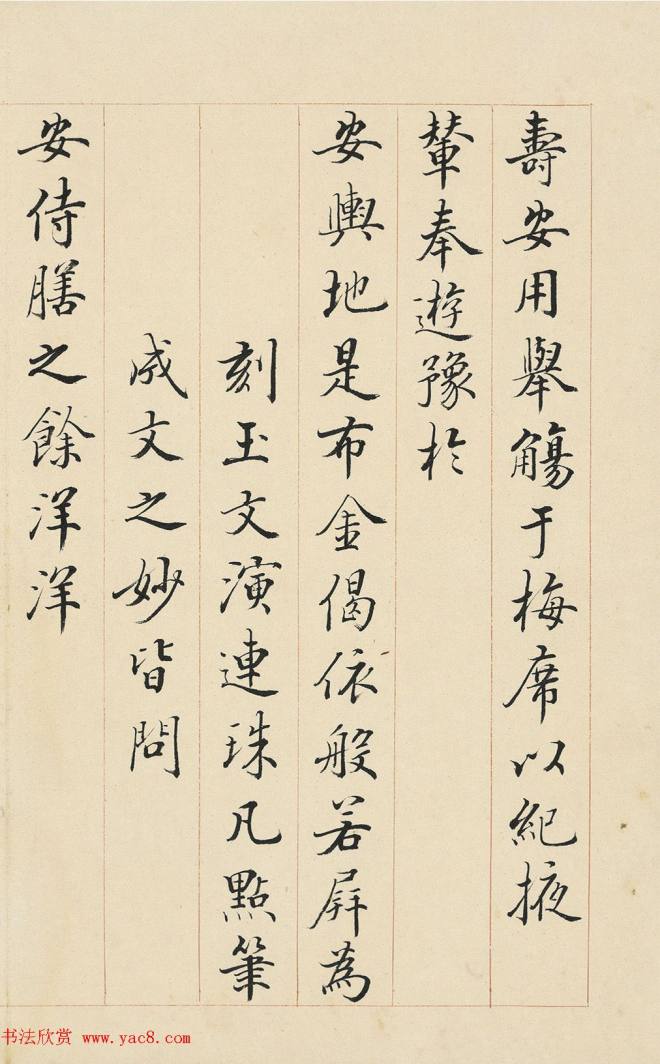 壽安用舉觴于梅席以紀掖
輦奉遊豫於
安輿地是布金偈依般若屏為
刻玉文演連珠凡點筆
成文之妙皆問
安侍膳之餘洋洋
书法欣赏 www.yac8.com